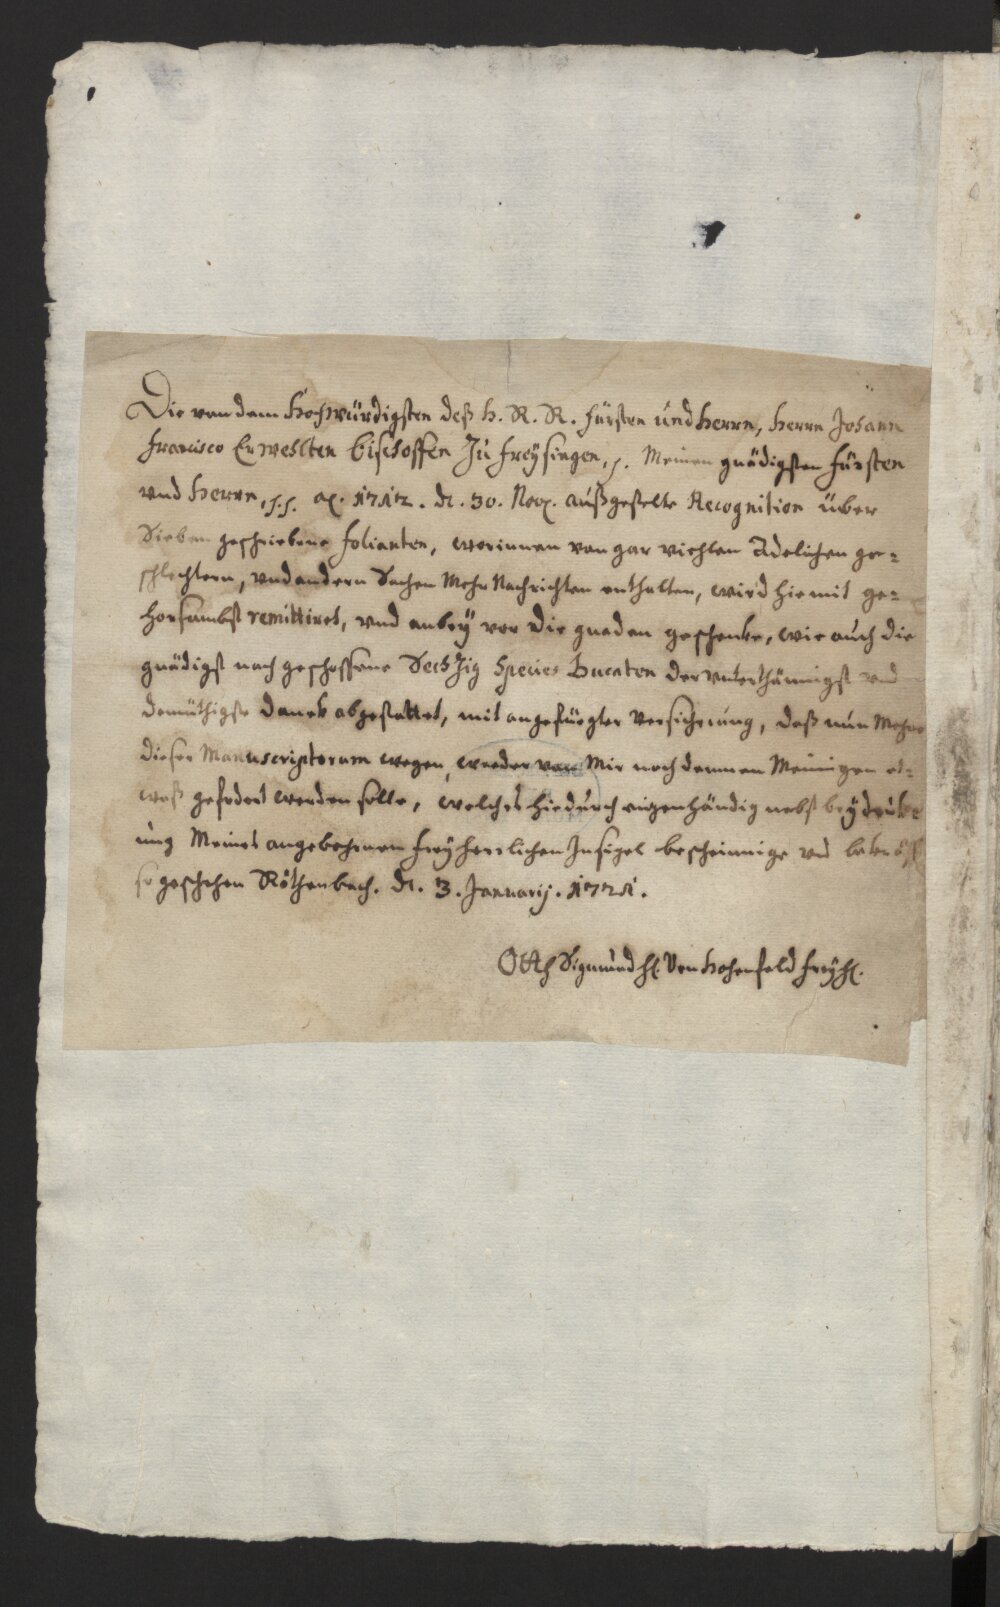 Die von dem Hochwürdigsten deß H. R. R. Fürsten und Herrn, Herrn Johann
Francisco Erwehlten Bischoffen Zu Freysingen, p. Meinen gnädigsten Fürsten
vnd Herrn, p. p. ao. 1712. d. 30. Nov. außgestelte Recognition über
Sieben geschriebene Folianten, worinnen von gar viehlen Adelichen ge=
schlechtern, vnd andern Sachen Mehr Nachrichten enthalten, wird hiemit ge=
horsambst remittiret, vnd anbey vor die gnaden geschenke, wie auch die
gnädigst nach geschossene Sechzig Species Ducaten der vnterthänigst vnd
demüthigste Danck abgestattet, mit angefüegter Versicherung, daß nun Mehro
dieser Manuscriptorum wegen, weeder von Mir noch denen Meinigen et=
waß gefodert werden solle, welches hiedurch eigenhändig nebst beydruk
ung Meines angebohrnen Freyherrlichen Insigel bescheinige vnd
so geschehen Röthenbach. d. 3. Januarij. 1721.
Otth Sigmund H. Von Hohenfeld Freyh.